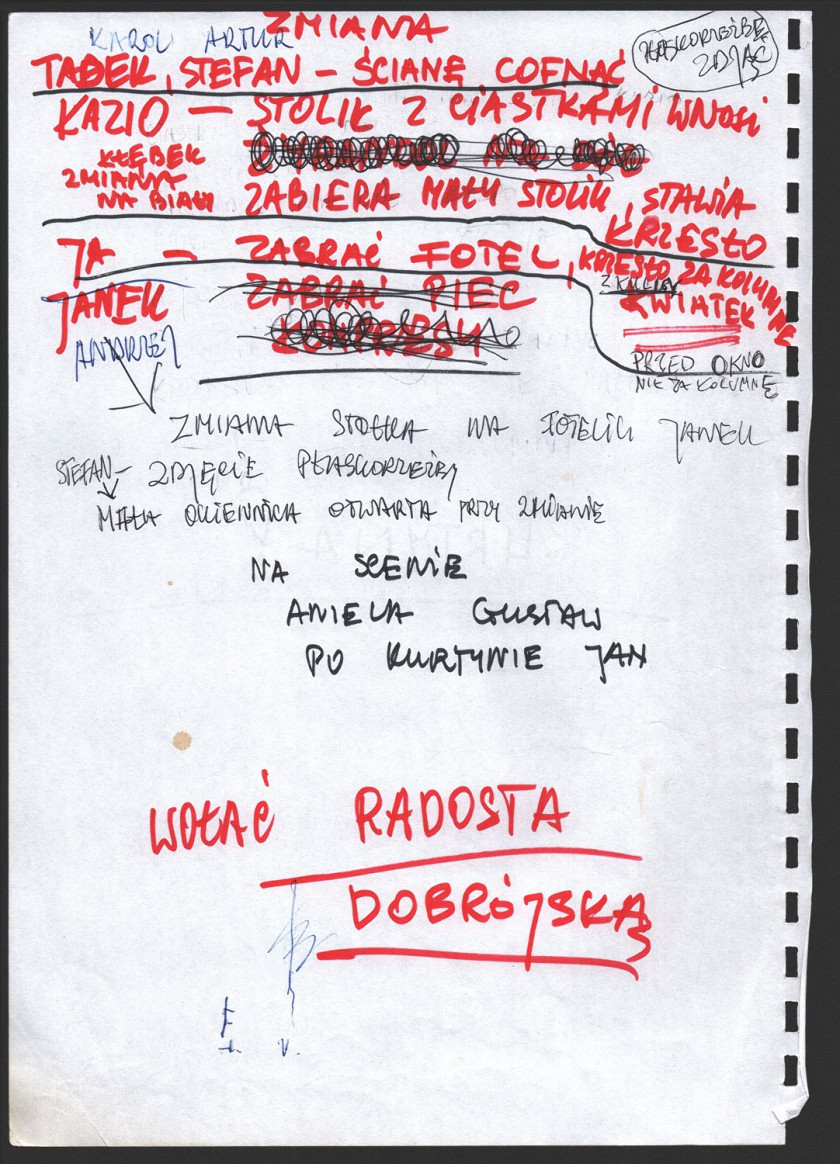 ZMIANA
KAROL ARTUR
PŁASKORZEŹBĘ
ZDJĄĆ
TADEK, STEFAN – ŚCIANĘ COFNĄĆ
KAZIO – STOLIK Z CIASTKAMI WNOSI
KŁĘBEK
ZMIANA
NA BIAŁY
ZABIERA MAŁY STOLIK, STAWIA
KRZESŁO
JA – ZABRAĆ FOTEL, KRZESŁO ZA KOLUMNĘ
KWIATEK
JANEK ZABRAĆ PIEC
ANDRZEJ
PRZED OKNO
NIE ZA KOLUMNĘ
ZMIANA STOŁKA NA FOTELIK JANEK
STEFAN – ZDJĘCIE PŁASKORZEŹBY
MAŁA OKIENNICA OTWARTA PRZY ZMIANIE
NA SCENIE
ANIELA GUSTAW
PO KURTYNIE JAN
WOŁAĆ RADOSTA
DOBRÓJSKĄ